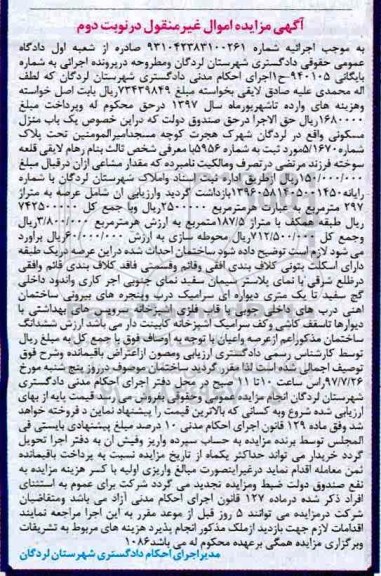 آگهی مزایده اموال غیرمنقول درنوبت دوم
به موجب اجرائیه شماره ۹۳۱۰۴۲۳۸۳۱۰۰۲۶۱ صادره از شعبه اول دادگاه
عمومی حقوقی دادگستری شهرستان لردگان ومطروحه درپرونده اجرائی به شماره
بایگانی ۹۴۰۱۰۵-ج۱اجرای احکام مدنی دادگستری شهرستان لردگان که لطف
اله محمدی علیه صادق لایقی بخواسته مبلغ ۷۳۴۳۹۸۴۹ریال بابت اصل خواسته
وهزینه های وارده تاشهریورماه سال ۱۳۹۷ درحق محکوم له وپرداخت مبلغ
۱۶۸۰۰۰۰ریال حق الاجرا درحق صندوق دولت که دراین خصوص یک باب منزل
مسکونی واقع در لردگان شهرک هجرت کوچه مسجدامیرالمومنین تحت پلاک
شماره۵/۱۶۷۰مورد ثبت به شماره ۵۹۵۶با معرفی شخص ثالث بنام رهام لایقی قلعه
سوخته فرزند مرتضی درتصرف ومالکیت نامبرده که مقدار مشاعی ازان درقبال مبلغ
۱۵۰/۰۰۰/۰۰۰ریال ازطریق اداره ثبت اسناد واملاک شهرستان لردگان با شماره
رایانه۱۳۹۶۰۵۸۱۴۰۵۰۰۱۴۵۰بازداشت گردید وارزیابی ان شامل عرصه به متراژ
۲۹۷ مترمربع که عبارت هرمترمربع ۲۵۰۰۰۰۰ریال وبا جمع کل ۷۴۲۵۰۰۰۰۰
ریال طبقه همکف با متراژ ۱۸۷/۵مترمربع به ارزش هرمترمربع ۳/۸۰۰/۰۰۰ریال
وجمع کل ۷۱۲/۵۰۰/۰۰۰ریال محوطه سازی به ارزش ۶۰/۰۰۰/۰۰۰ریال براورد
می شود لازم است توضیح داده شود ساختمان احداث شده دراین عرصه دریک طبقه
دارای اسکلت بتونی کلاف بندی افقی وقائم وقسمتی فاقد کلاف بندی قائم وافقی
درظلع شرقی با نمای پلاستر سیمان سفید نمای جنوبی اجر کاری واندود داخلی
گچ سفید تا یک متری دیواره ای سرامیک درب وپنجره های بیرونی ساختمان
اهنی درب های داخلی چوبی با قاب فلزی اشپزخانه سرویس های بهداشتی با
دیوارها تاسقف کاشی وکف سرامیک اشپزخانه کابینت دار می باشد ارزش ششدانگ
ساختمان مذکوراعم ازعرصه واعیان با توجه به اوصاف فوق با جمع کل به مبلغ ریال
توسط کارشناس رسمی دادگستری ارزیابی ومصون ازاعتراض باقیمانده وشرح فوق
توصیف اجمالی شده است لذا مقرر گردید ساختمان موصوف درروز پنج شنبه مورخ
۹۷/۷/۲۶راس ساعت ۱۰تا ۱۱ صبح در محل دفتر اجرای احکام مدنی دادگستری
شهرستان لردگان انجام مزایده عمومی وحقوقی بفروش می رسد قیمت پایه از بهای
ارزیابی شده شروع وبه کسانی که بالاترین قیمت را پیشنهاد نماین د فروخته خواهد
شد وفق ماده ۱۲۹ قانون اجرای احکام مدنی ۱۰ درصد مبلغ پیشنهادی بایستی فی
المجلس توسط برنده مزایده به حساب سپرده واریز وفیش ان به دفتر اجرا تحویل
گردد خریدار می تواند حداکثر یکماه از تاریخ مزایده نسبت به پرداخت باقیمانده
ثمن معامله اقدام نماید درغیراینصورت مبالغ واریزی اولیه با کسر هزینه مزایده به
نفع صندوق دولت ضبط ومزایده تجدید می گردد شرکت برای عموم به استثنای
افراد ذکر شده درماده ۱۲۷ قانون اجرای احکام مدنی آزاد می باشد ومتقاضیان
شرکت درمزایده می توانند ۵ روز قبل از موعد مقرر به این اجرا مراجعه نمایند
اقدامات لازم جهت بازدید ازملک مذکور انجام پذیرد هزینه های مربوط به تشریفات
وبرگزاری مزایده همگی برعهده محکوم له می باشد۱۰۸۶
مدیراجرای احکام دادگستری شهرستان لردگان